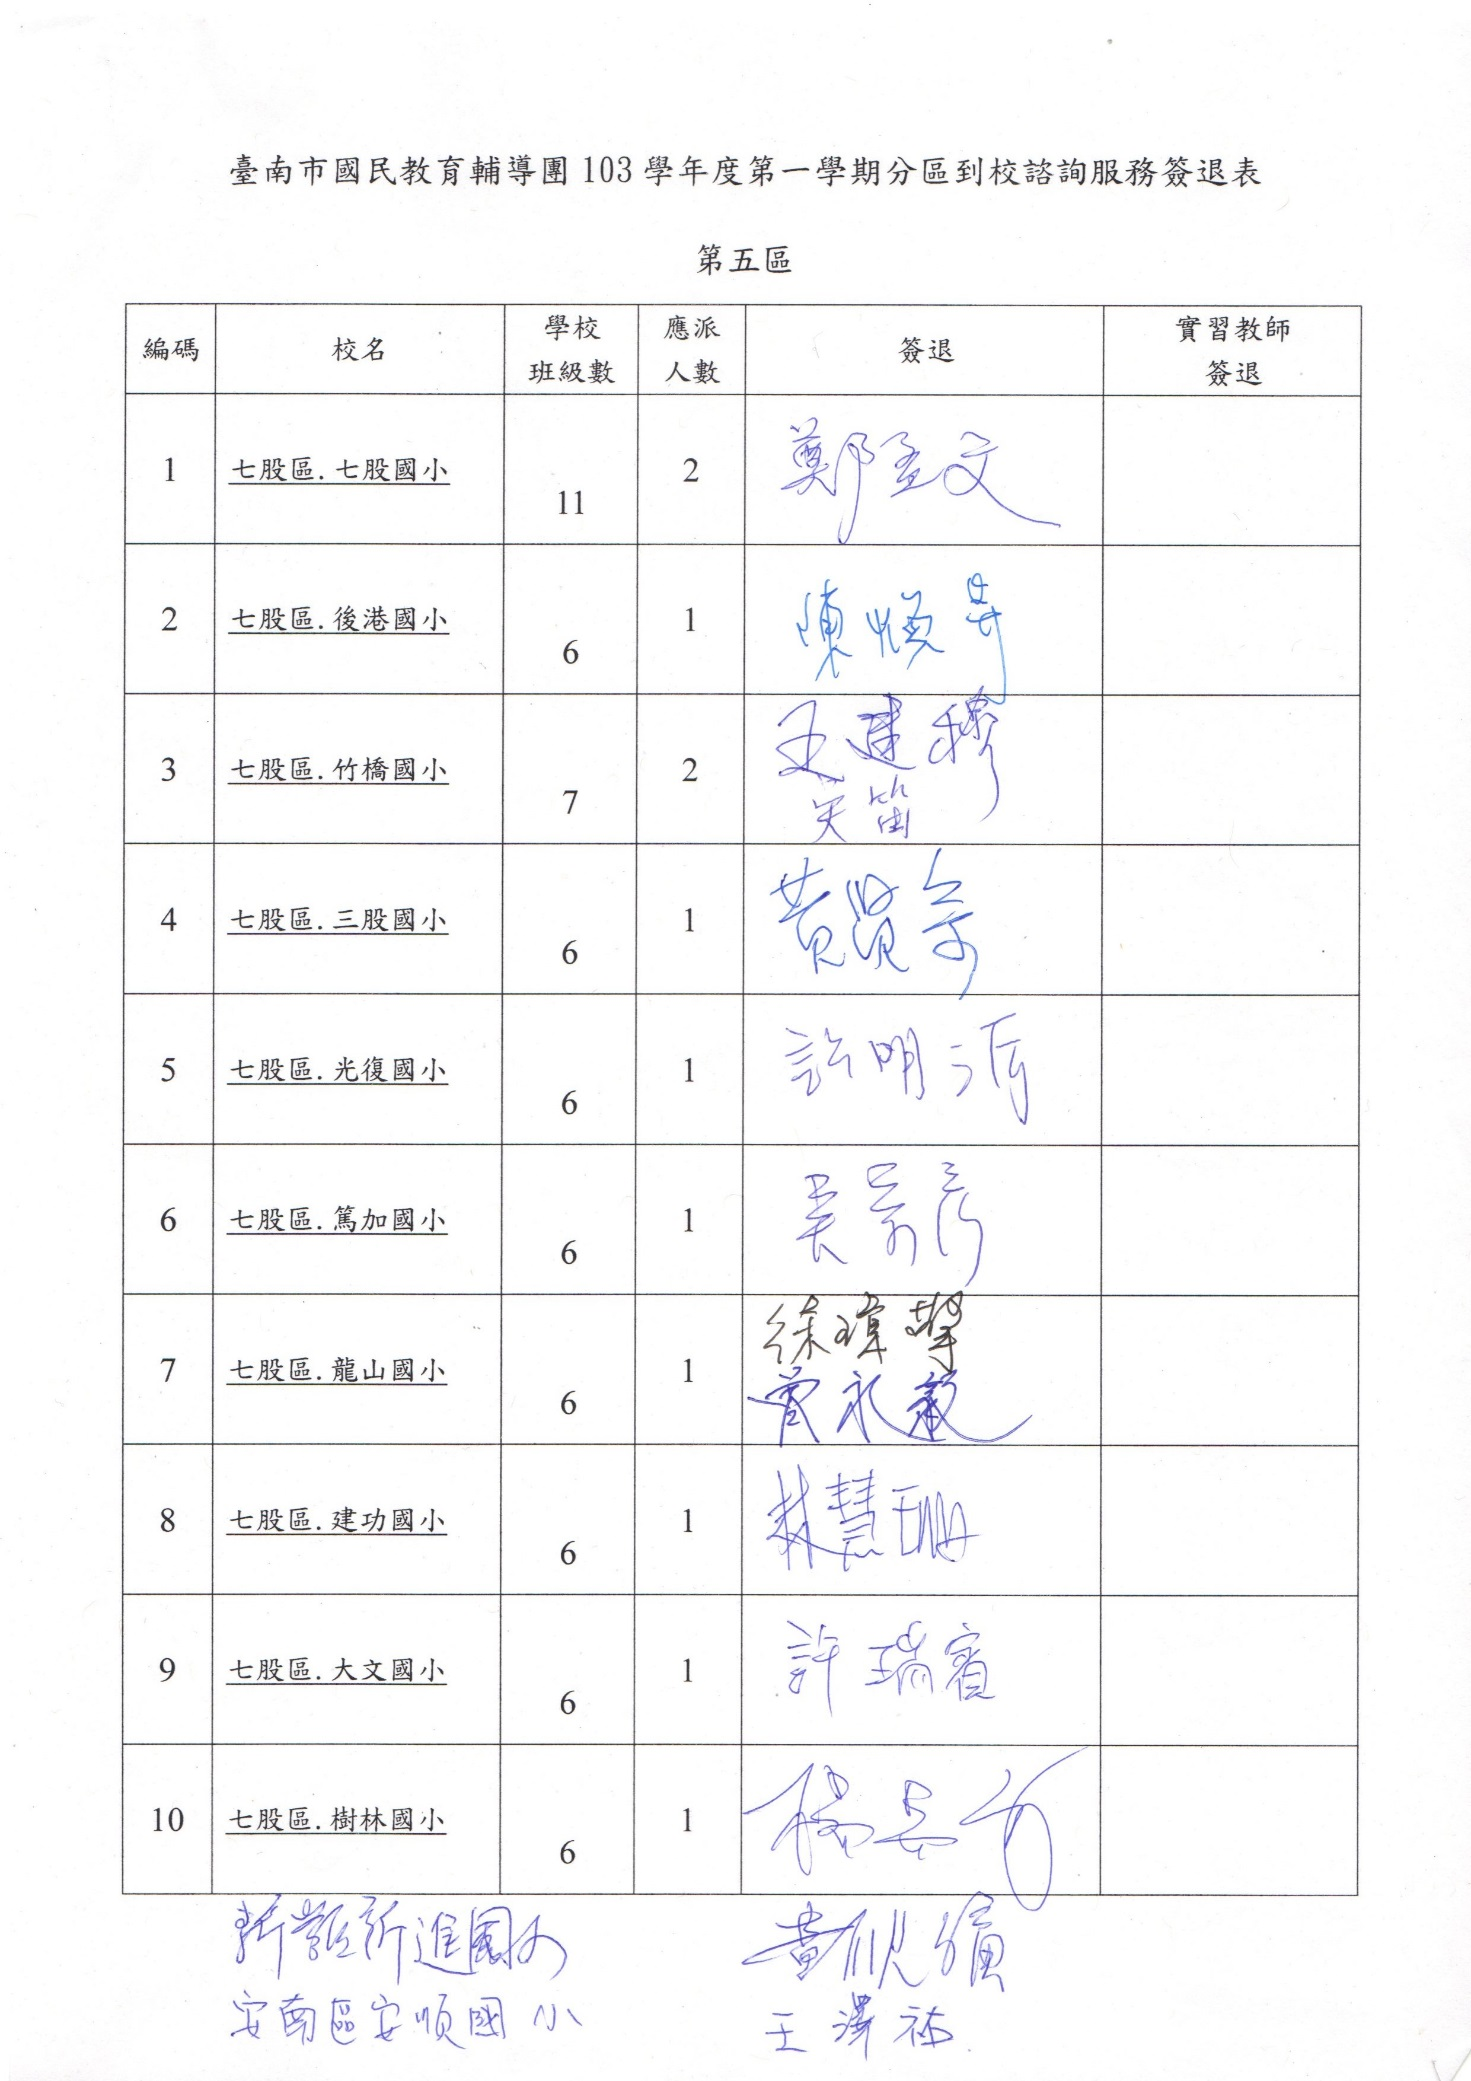 臺南市國民教育輔導團 103 學年度第一學期分區到校諮詢服務簽退表
第五區
編碼 校名 學校班級數 應派人數 簽退 實習教師簽退
1 七股區.七股國小 11 2 鄭至文
2 七股區.後港國小 6 1 陳
3 七股區.竹橋國小 7 2 王建穆
4 七股區.三股國小 6 1 黃
5 七股區.光復國小 6 1 許明
6 七股區.篤加國小 6 1 吳
7 七股區.龍山國小 6 1 徐瑋
曾永
8 七股區.建功國小 6 1 林慧珊
9 七股區.大文國小 6 1 許瑞賓
10 七股區.樹林國小 6 1 楊
新進國小 黃
安南區安順國小 王澤祐